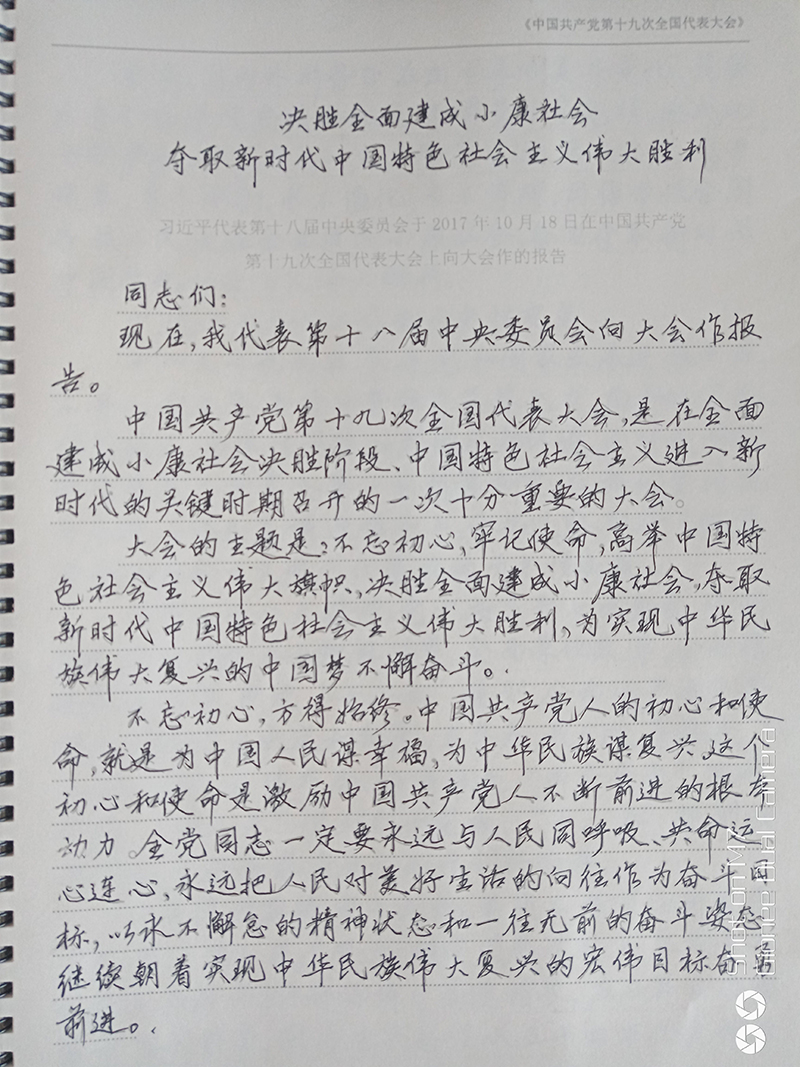 《中国共产党第十九次全国代表大会》
决胜全面建成小康社会
夺取新时代中国特色社会主义伟大胜利
习近平代表第十八届中央委员会于 2017 年 10 月 18 日在中国共产党
第十九次全国代表大会上向大会作的报告
同志们：
现在，我代表第十八届中央委员会向大会作报
告。
中国共产党第十九次全国代表大会，是在全面
建成小康社会决胜阶段、中国特色社会主义进入新
时代的关键时期召开的一次十分重要的大会。
大会的主题是：不忘初心，牢记使命，高举中国特
色社会主义伟大旗帜，决胜全面建成小康社会，夺取
新时代中国特色社会主义伟大胜利，为实现中华民
族伟大复兴的中国梦不懈奋斗。
不忘初心，方得始终。中国共产党人的初心和使
命，就是为中国人民谋幸福，为中华民族谋复兴。这个
初心和使命是激励中国共产党人不断前进的根本
动力。全党同志一定要永远与人民同呼吸、共命运、
心连心，永远把人民对美好生活的向往作为奋斗目
标，以永不懈怠的精神状态和一往无前的奋斗姿态，
继续朝着实现中华民族伟大复兴的宏伟目标奋勇
前进。